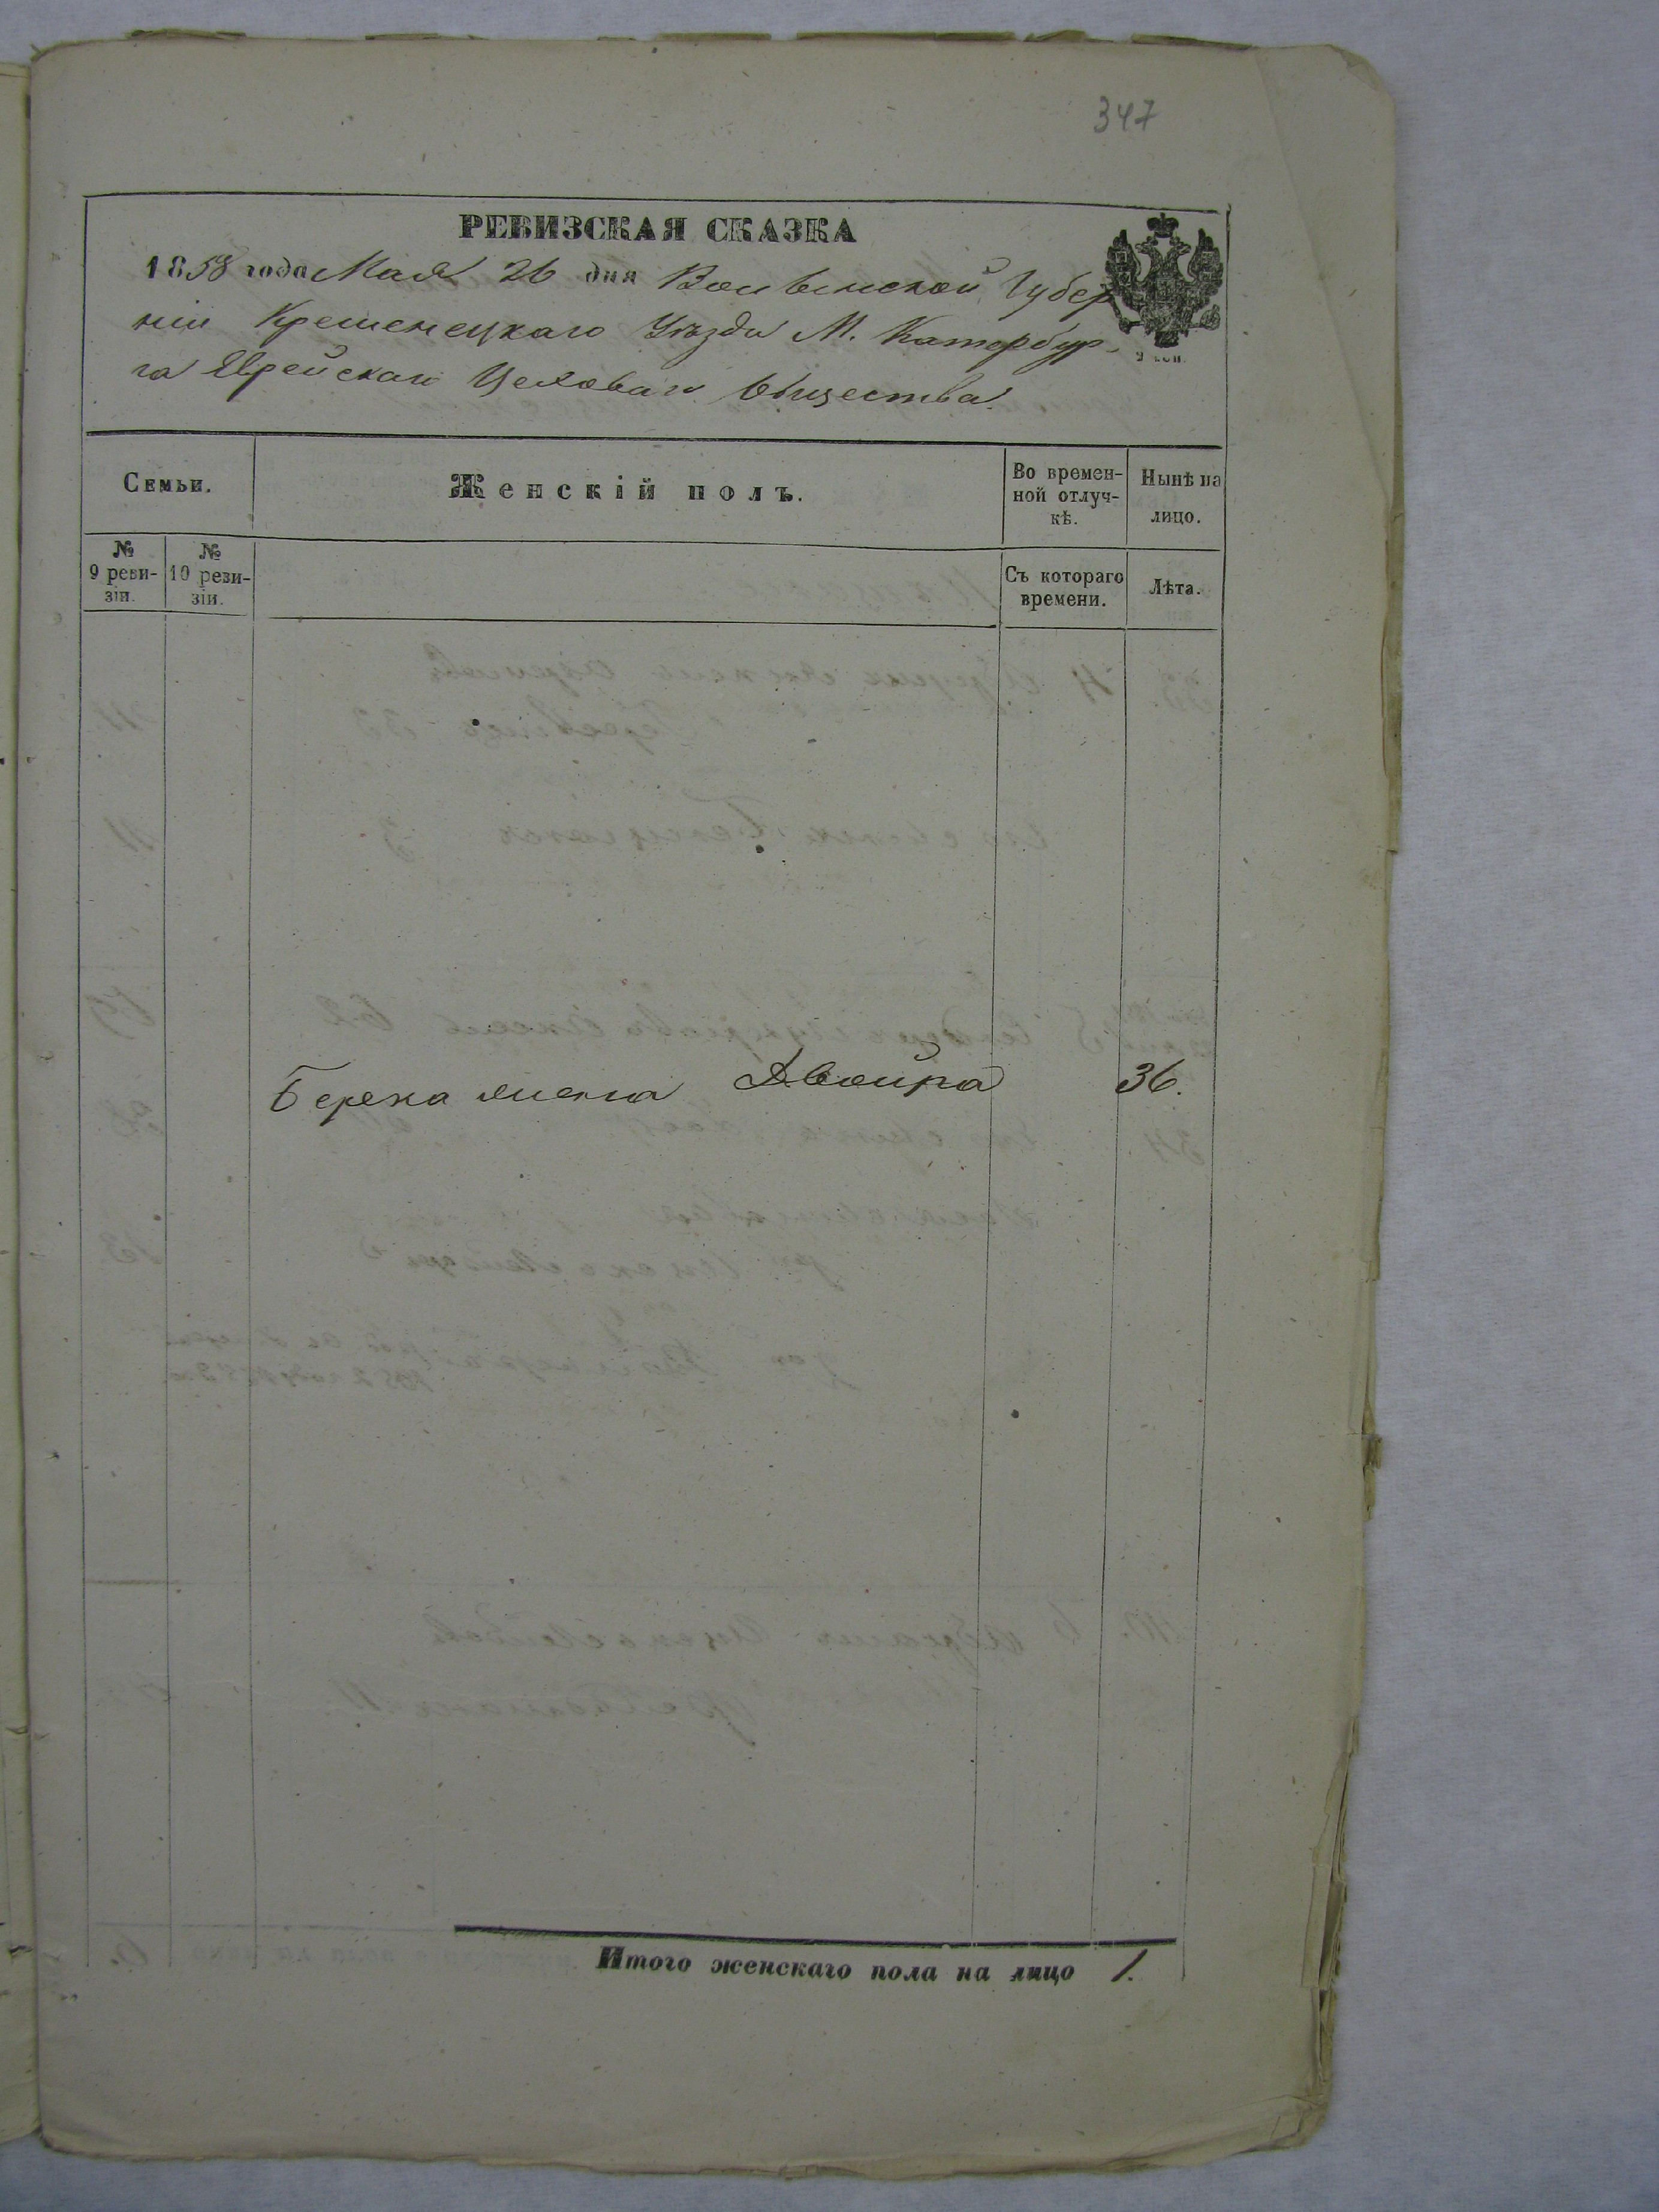 347
РЕВИЗСКАЯ СКАЗКА
1858 года Мая 26 дня Волынской Губер
ніи Кременецкаго Уѣзда М. Катербур-
га Еврейскаго Цеховаго Общества.
Семьи.
Женскій полъ.
Во времен-
ной отлуч-
кѣ.
Нынѣ на
лицо.
№
9 реви-
зіи.
№
10 реви-
зіи.
Съ котораго
времени.
Лѣта.
Берека жена Двойра 36.
Итого женскаго пола на лицо 1.